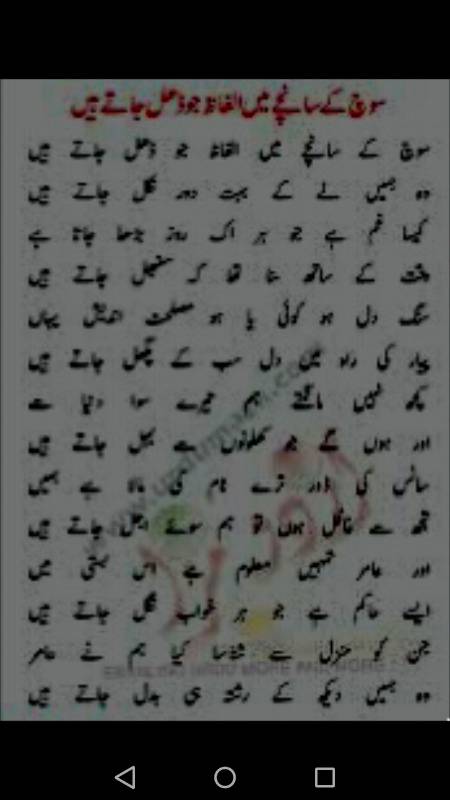 سوچ کے سانچے میں الفاظ جو ڈھل جاتے ہیں
سوچ کے سانچے میں الفاظ جو ڈھل جاتے ہیں
وہ ہمیں لے کے بہت دور نکل جاتے ہیں
کیسا غم ہے جو ہر اک روز بڑھا جاتا ہے
وقت کے ساتھ سنا تھا کہ سنبھل جاتے ہیں
سنگ دل ہو کوئی یا ہو مصلحت اندیش یہاں
پیار کی راہ میں دل سب کے پگھل جاتے ہیں
کچھ نہیں مانگتے ہم تیرے سوا دنیا سے
اور ہوں گے جو کھلونوں سے بہل جاتے ہیں
سانس کی ڈور ترے نام کی مالا ہے ہمیں
تجھ سے غافل ہوں تو ہم سوئے اجل جاتے ہیں
اور عامر تمہیں معلوم ہے اس بستی میں
ایسے حاکم ہے جو ہر خواب نگل جاتے ہیں
جن کو منزل سے شناسا کیا ہم نے عامر
وہ ہمیں دیکھ کے رستہ ہی بدل جاتے ہیں
www.urdumaza.com